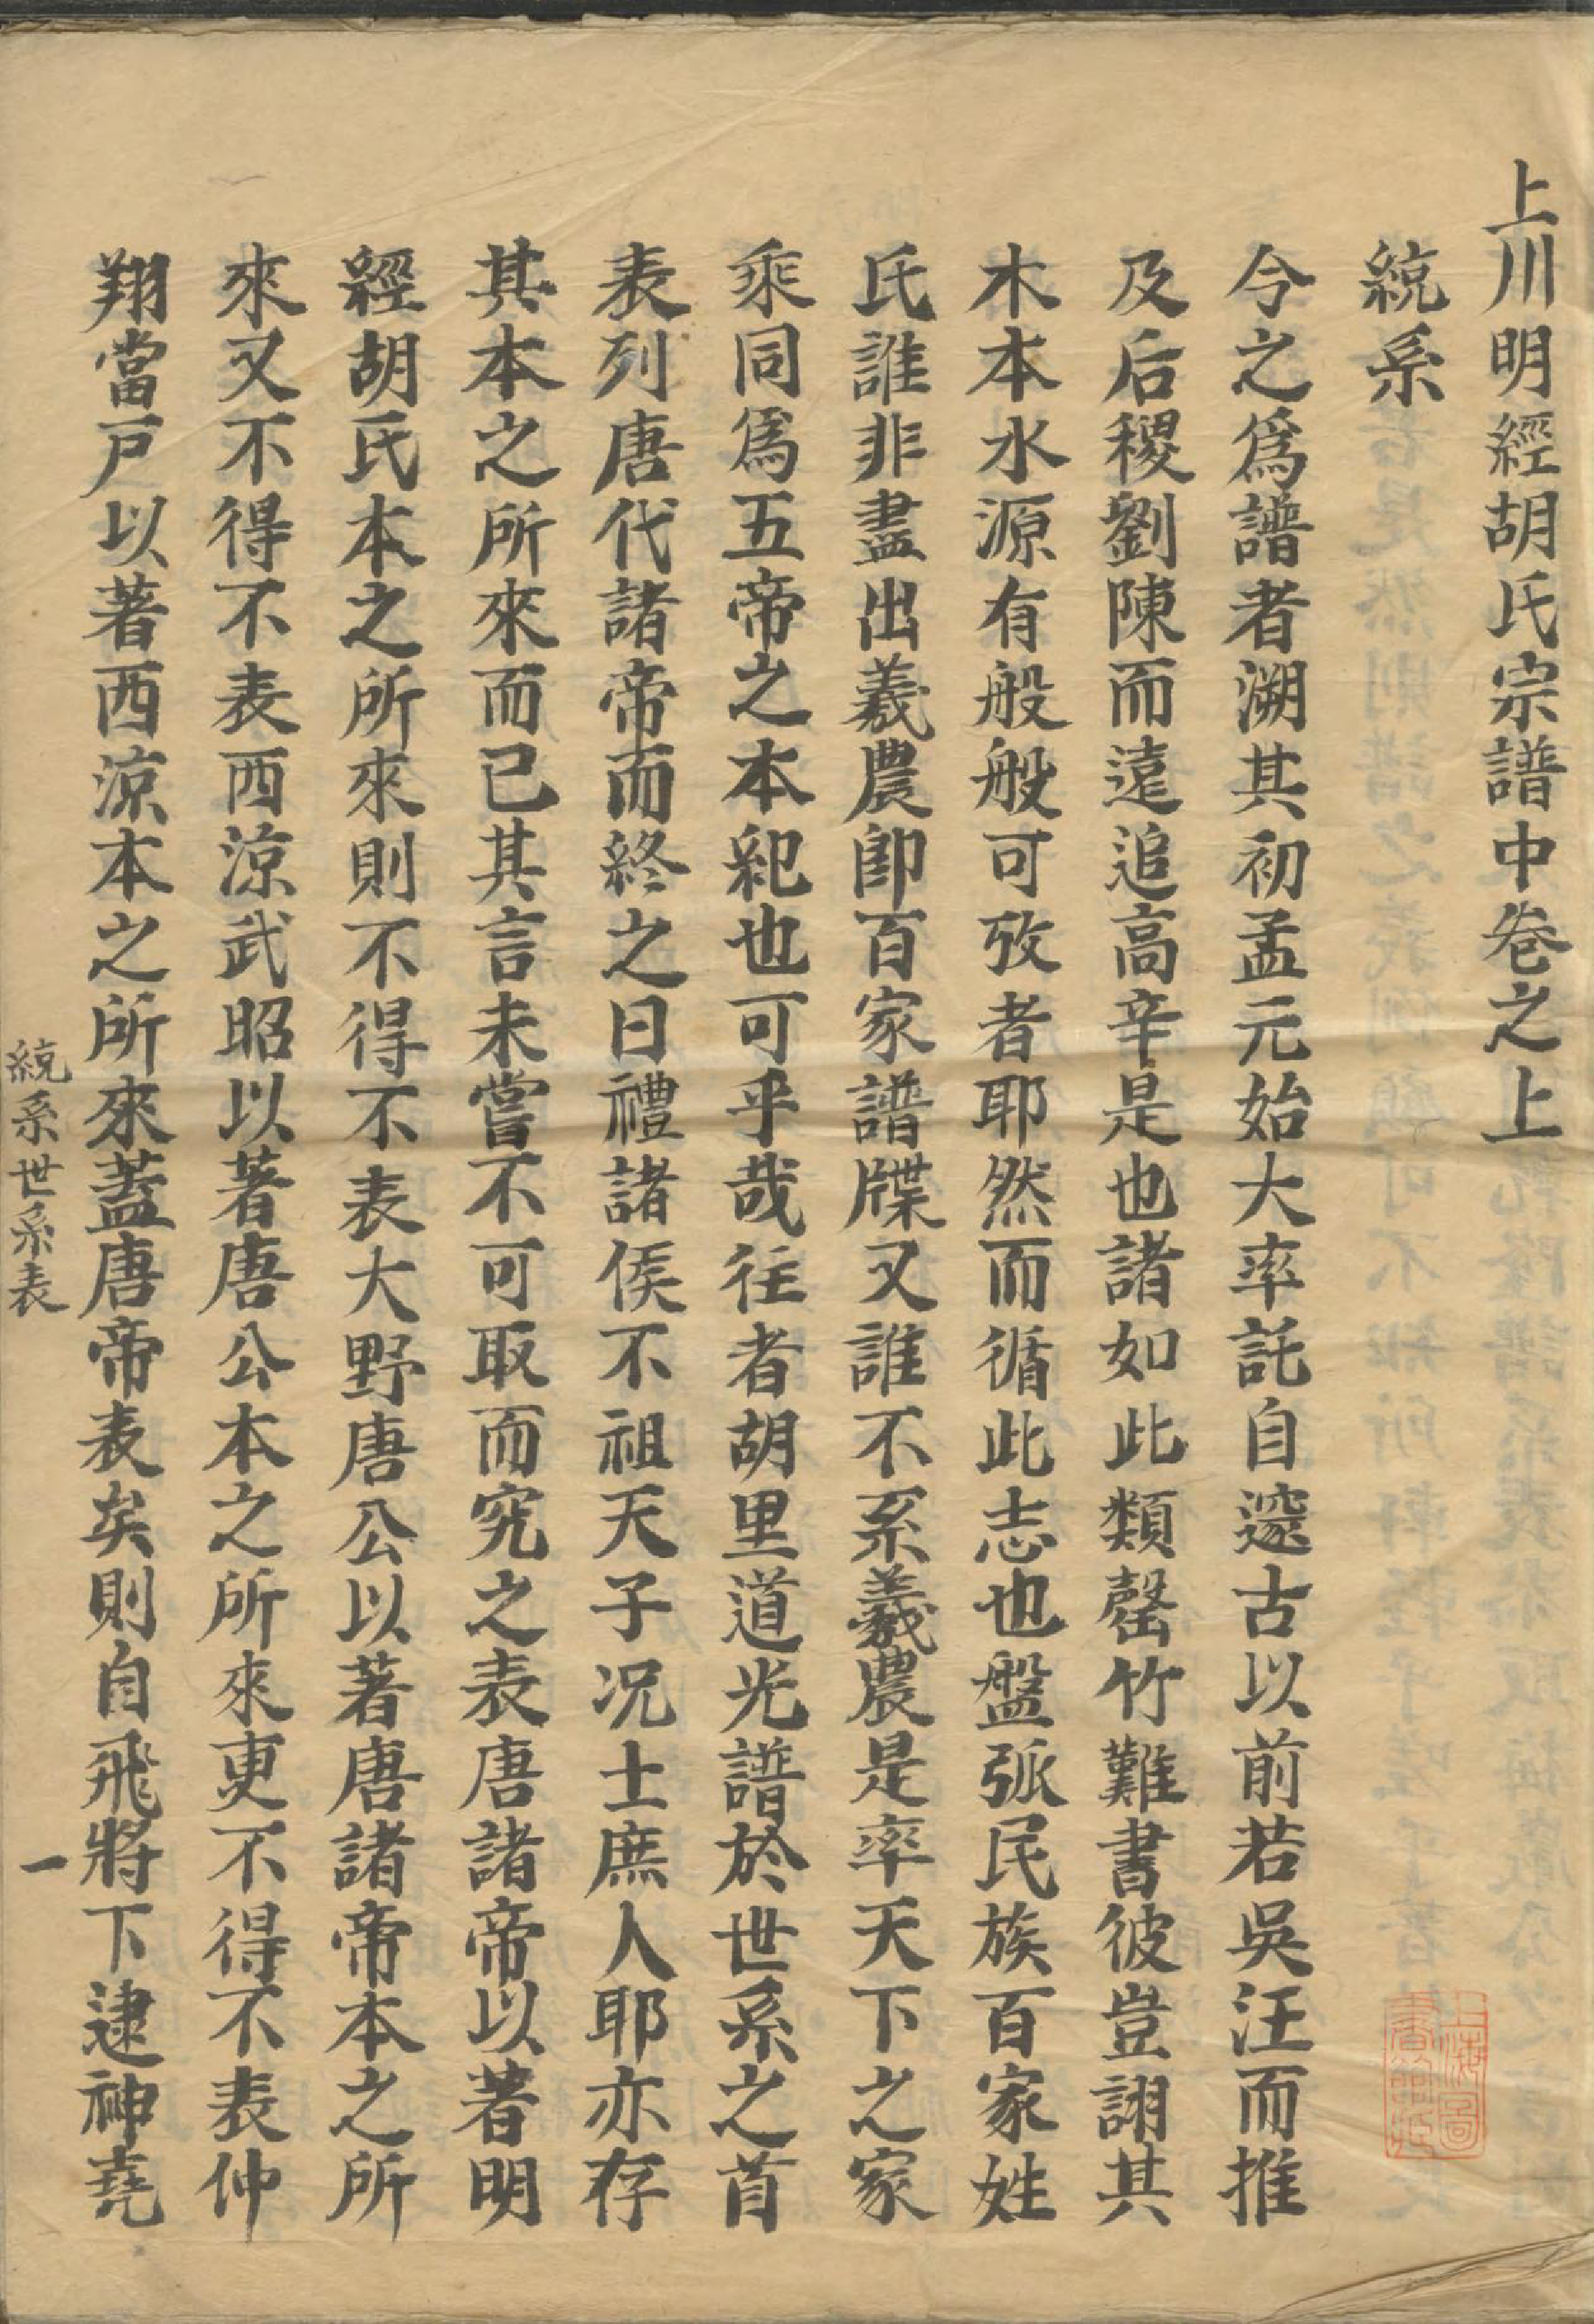 上川明經胡氏宗譜中卷之上
統系
今之爲譜者溯其初孟元始大率託自邃古以前若吳汪而推
及后稷劉陳而遠追高辛是也諸如此類罄竹難書彼豈詡其
木本水源有般般可攷者耶然而循此志也盤弧民族百家姓
氏誰非盡出羲農卽百家譜牒又誰不系羲農是率天下之家
乘同爲五帝之本紀也可乎哉往者胡里道光譜於世系之首
表列唐代諸帝而終之曰禮諸侯不祖天子况士庶人耶亦存
其本之所來而已其言未嘗不可取而究之表唐諸帝以著明
經胡氏本之所來則不得不表大野唐公以著唐諸帝本之所
來又不得不表西涼武昭以著唐公本之所來更不得不表仲
翔當戶以著西涼本之所來蓋唐帝表矣則自飛將下逮神堯
統系世系表
一
上海圖
書館藏